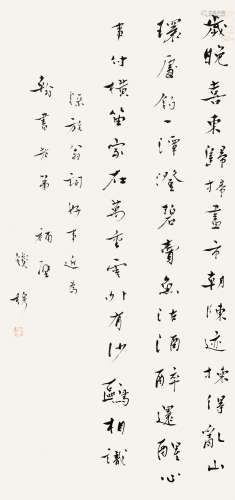 歲晚喜東歸掃盡市朝陳迹揀得亂山
環處釣一潭澄碧賣魚沽酒醉還醒心
事付橫笛家在萬重雲外有沙鷗相識
放翁詞好事近為
翰書老弟補壁
錢穆